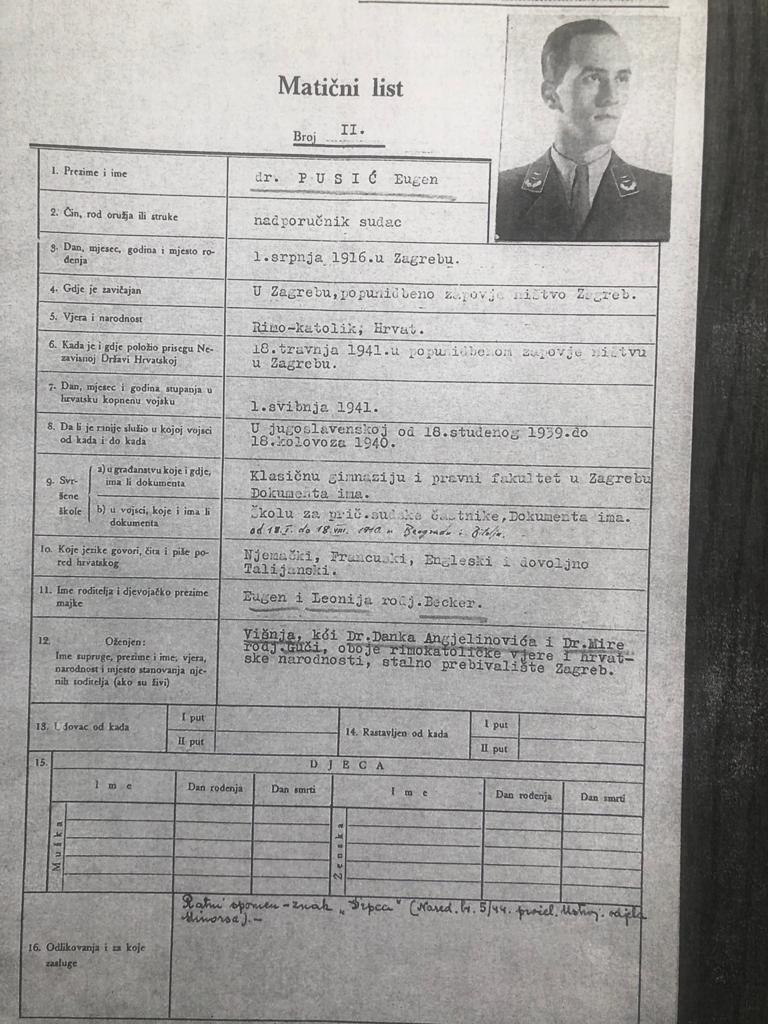 Matični list
Broj II.
1. Prezime i ime
dr. PUSIĆ Eugen
2. Čin, rod oružja ili struke
nadporučnik sudac
3. Dan, mjesec, godina i mjesto ro-
đenja
1.srpnja 1916.u Zagrebu.
4. Gdje je zavičajan
U Zagrebu,popunidbeno zapovje ništvo Zagreb.
5. Vjera i narodnost
Rimo-katolik, Hrvat.
6. Kada je i gdje položio prisegu Ne-
zavisnoj Državi Hrvatskoj
18.travnja 1941.u popunidbenom zapovje ništvu
u Zagrebu.
7. Dan, mjesec i godina stupanja u
hrvatsku kopnenu vojsku
1.svibnja 1941.
8. Da li je ranije služio u kojoj vojsci
od kada i do kada
U jugoslavenskoj od 18.studenog 1939.do
18.kolovoza 1940.
9. Svr-
šene
škole
a) u građanstvu koje i gdje,
ima li dokumenta
Klasičnu gimnaziju i pravni fakultet u Zagrebu
Dokumenta ima.
b) u vojsci, koje i ima li
dokumenta
Školu za prič.sudske častnike,Dokumenta ima.
od 18.I. do 18.VIII. 1940 u Beogradu i Bitolju.
10. Koje jezike govori, čita i piše po-
red hrvatskog
Njemački, Francuski, Engleski i dovoljno
Talijanski.
11. Ime roditelja i djevojačko prezime
majke
Eugen i Leonija rodj.Becker.
12. Oženjen:
Ime supruge, prezime i ime, vjera,
narodnost i mjesto stanovanja nje-
nih roditelja (ako su živi)
Višnja, kći Dr.Danka Angjelinovića i Dr.Mire
rodj.Guči, oboje rimokatoličke vjere i hrvat-
ske narodnosti, stalno prebivalište Zagreb.
13. Udovac od kada
I put
II put
14. Rastavljen od kada
I put
II put
15.
DJECA
Ime
Dan rođenja
Dan smrti
Ime
Dan rođenja
Dan smrti
Muška
Ženska
16. Odlikovanja i za koje
zasluge
Ratni spomen-znak (Nared. br. 5/44. odjela
Minorsa).-